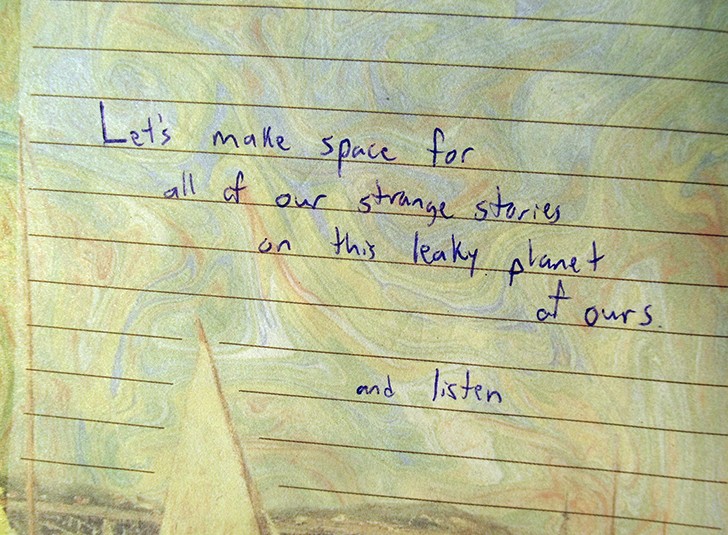 Let's make space for
all of our strange stories
on this leaky planet
of ours.
and listen